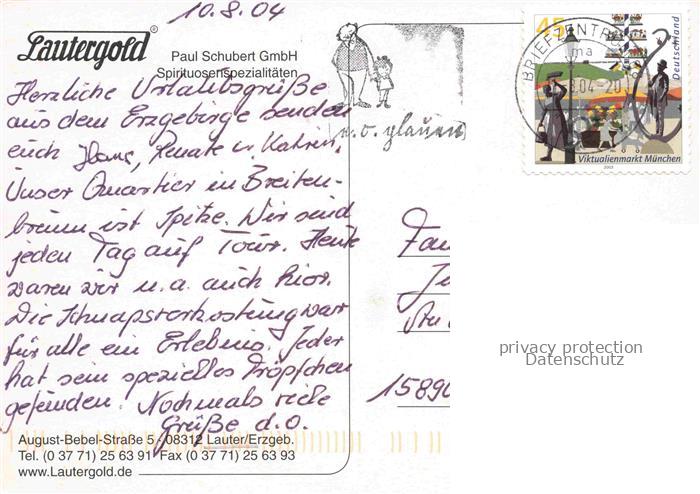 10.8.04
Lautergold®
Paul Schubert GmbH
Spirituosenspezialitäten
Herzliche Urlaubsgrüße
aus dem Erzgebirge senden
euch Renate u. Katrin.
Unser Quartier in Breiten-
brunn ist Spitze. Wir sind
jeden Tag auf Tour. Heute
waren wir u. a. auch hier.
Die Schnapsverkostung war
für alle ein Erlebnis. Jeder
hat sein spezielles Tröpfchen
gefunden. Nochmals viele
Grüße d. O.
August-Bebel-Straße 5 - 08312 Lauter/Erzgeb.
Tel. (0 37 71) 25 63 91 Fax (0 37 71) 25 63 93
www.Lautergold.de
e.o. plauen
BRIEFZENTR
.04-20
45
Deutschland
Viktualienmarkt München
2003
Fam
15890
privacy protection
Datenschutz